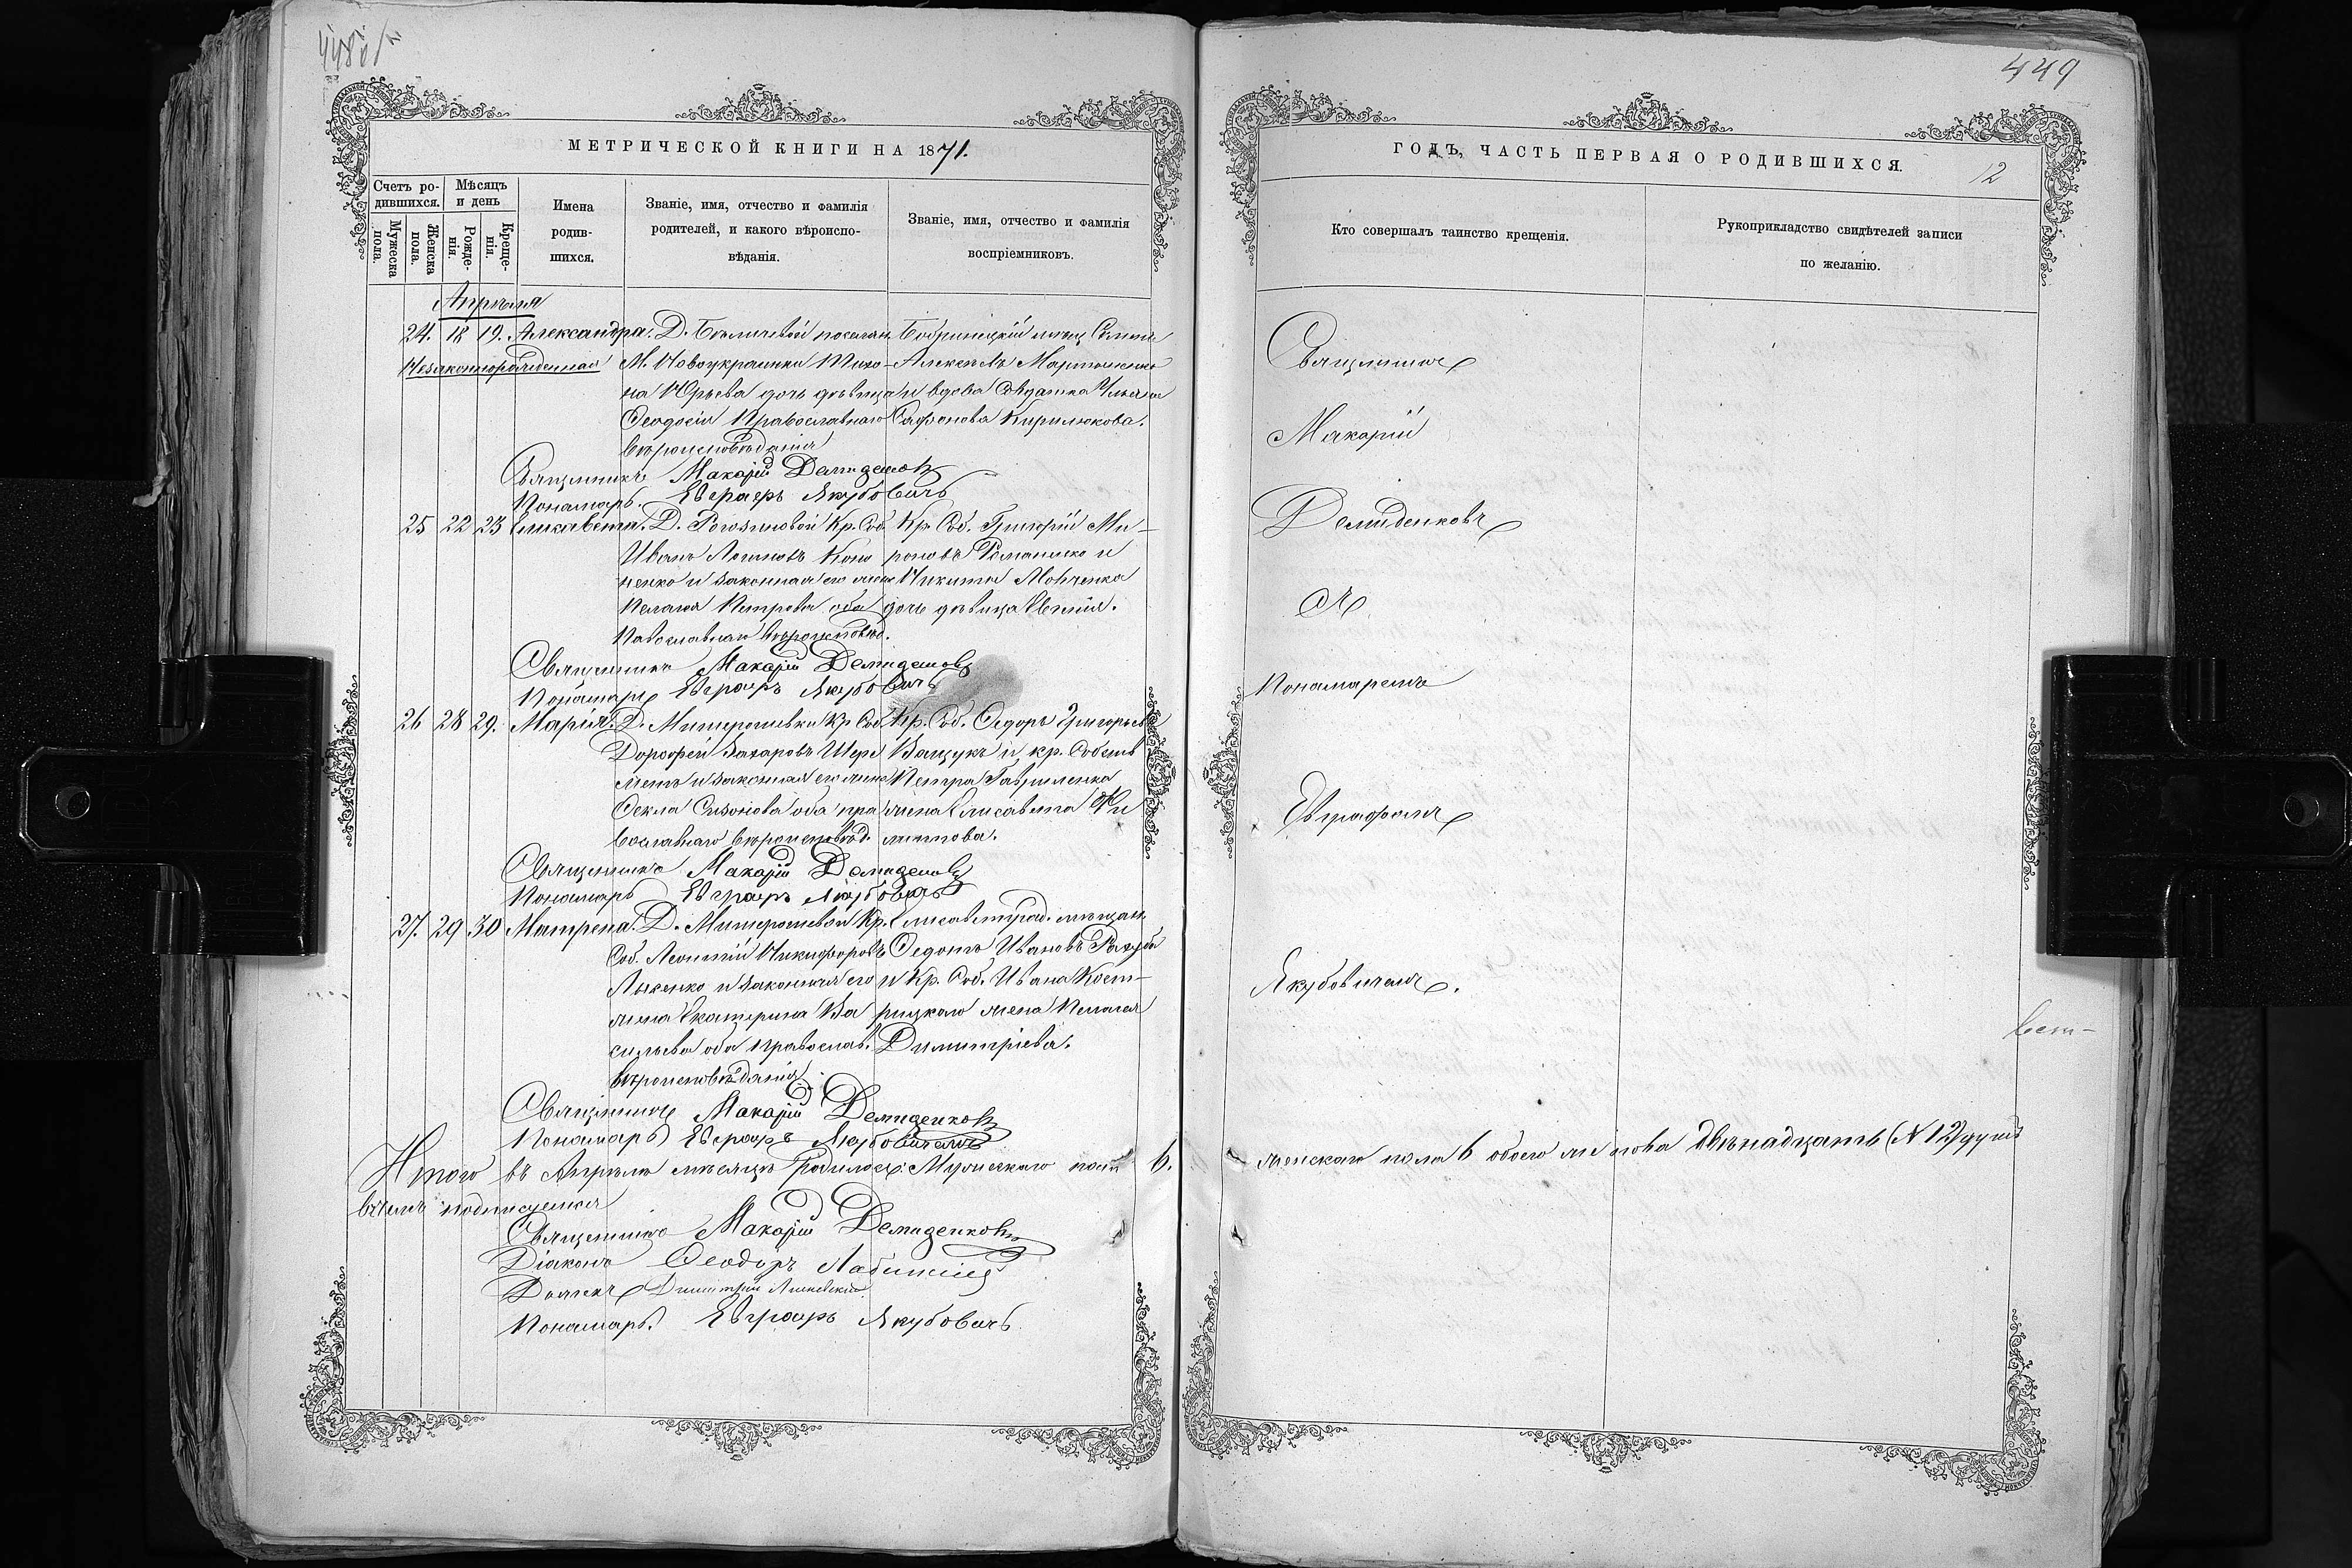 448 об
МЕТРИЧЕСКОЙ КНИГИ НА 1871.
Счетъ ро-
дившихся.
Мѣсяцъ
и день
Мужеска
пола.
Женска
пола.
Рожде-
нія.
Креще-
нія.
Имена
родив-
шихся.
Званіе, имя, отчество и фамилія
родителей, и какого вѣроиспо-
вѣданія.
Званіе, имя, отчество и фамилія
воспріемниковъ.
Апрѣля
24. 18 19. Александра.
Незаконнорожденная
Д. поселян.
М. Новоукраинки Тихо-
на Юрьева дочь дѣвица
Феодосія Православнаго
вѣроисповѣданія
Бобринецкій мѣщ.
Алексѣевъ Мартыненко
и вдова Солдатка
Сафонова Кирилюкова.
Священникъ Макарій Демиденков
Пономарь. Евграфъ Якубовичъ
25 22 23 Елисавета.
Д. Кр. Соб.
Иванъ Логиновъ Коно
ненко и законная его жена
Пелагія Петрова оба
Павославнаго вѣроисповѣд.
Кр. Соб. Григорій Ми-
роновъ Романенко и
Никиты
дочь дѣвица Евгенія.
Священникъ Макарій Демиденковъ
Пономарь Евграфъ Якубовичъ
26 28 29. Марія.
Д. Митрошевки Кр. Соб
Дорофей Захаровъ Шере
метъ и законная его жена
Фекла Сизонова оба пра
вославнаго вѣроисповѣд.
Кр. Соб. Федоръ Григорьевъ
Ващукъ и кр. Собств
Петра Гавриленка
жена Елисавета Фи
липпова.
Священникъ Макарій Демиденковъ
Пономарь Евграфъ Якубовичъ
27. 29 30 Матрена.
Д. Митрошевки Кр.
Соб. Леонтій Никифоровъ
Лысенко и законная его
жена Екатерина Ва
сильева оба православ.
вѣроисповѣданія.
Елисаветград. мѣщан.
Федотъ Ивановъ
и Кр. Соб. Ивана Кост-
рицкаго жена Пелагея
Димитріева.
Священникъ Макарій Демиденковъ
Пономарь Евграфъ Якубовичъ
Итого въ Апрѣлѣ мѣсяцѣ родилось: Мужескаго пола 6.
въ чемъ подписуемся
Священникъ Макарій Демиденковъ
Діаконъ Феодоръ
Дьячекъ Димитрій
Пономарь. Евграфъ Якубовичъ
449
ГОДЪ, ЧАСТЬ ПЕРВАЯ О РОДИВШИХСЯ.
12
Кто совершалъ таинство крещенія.
Рукоприкладство свидѣтелей записи
по желанію.
Священникъ
Макарій
Демиденковъ
съ
Пономаремъ
Евграфомъ
Якубовичемъ.
женскаго пола 6 обоего же пола двѣнадцать (N 12) душъ